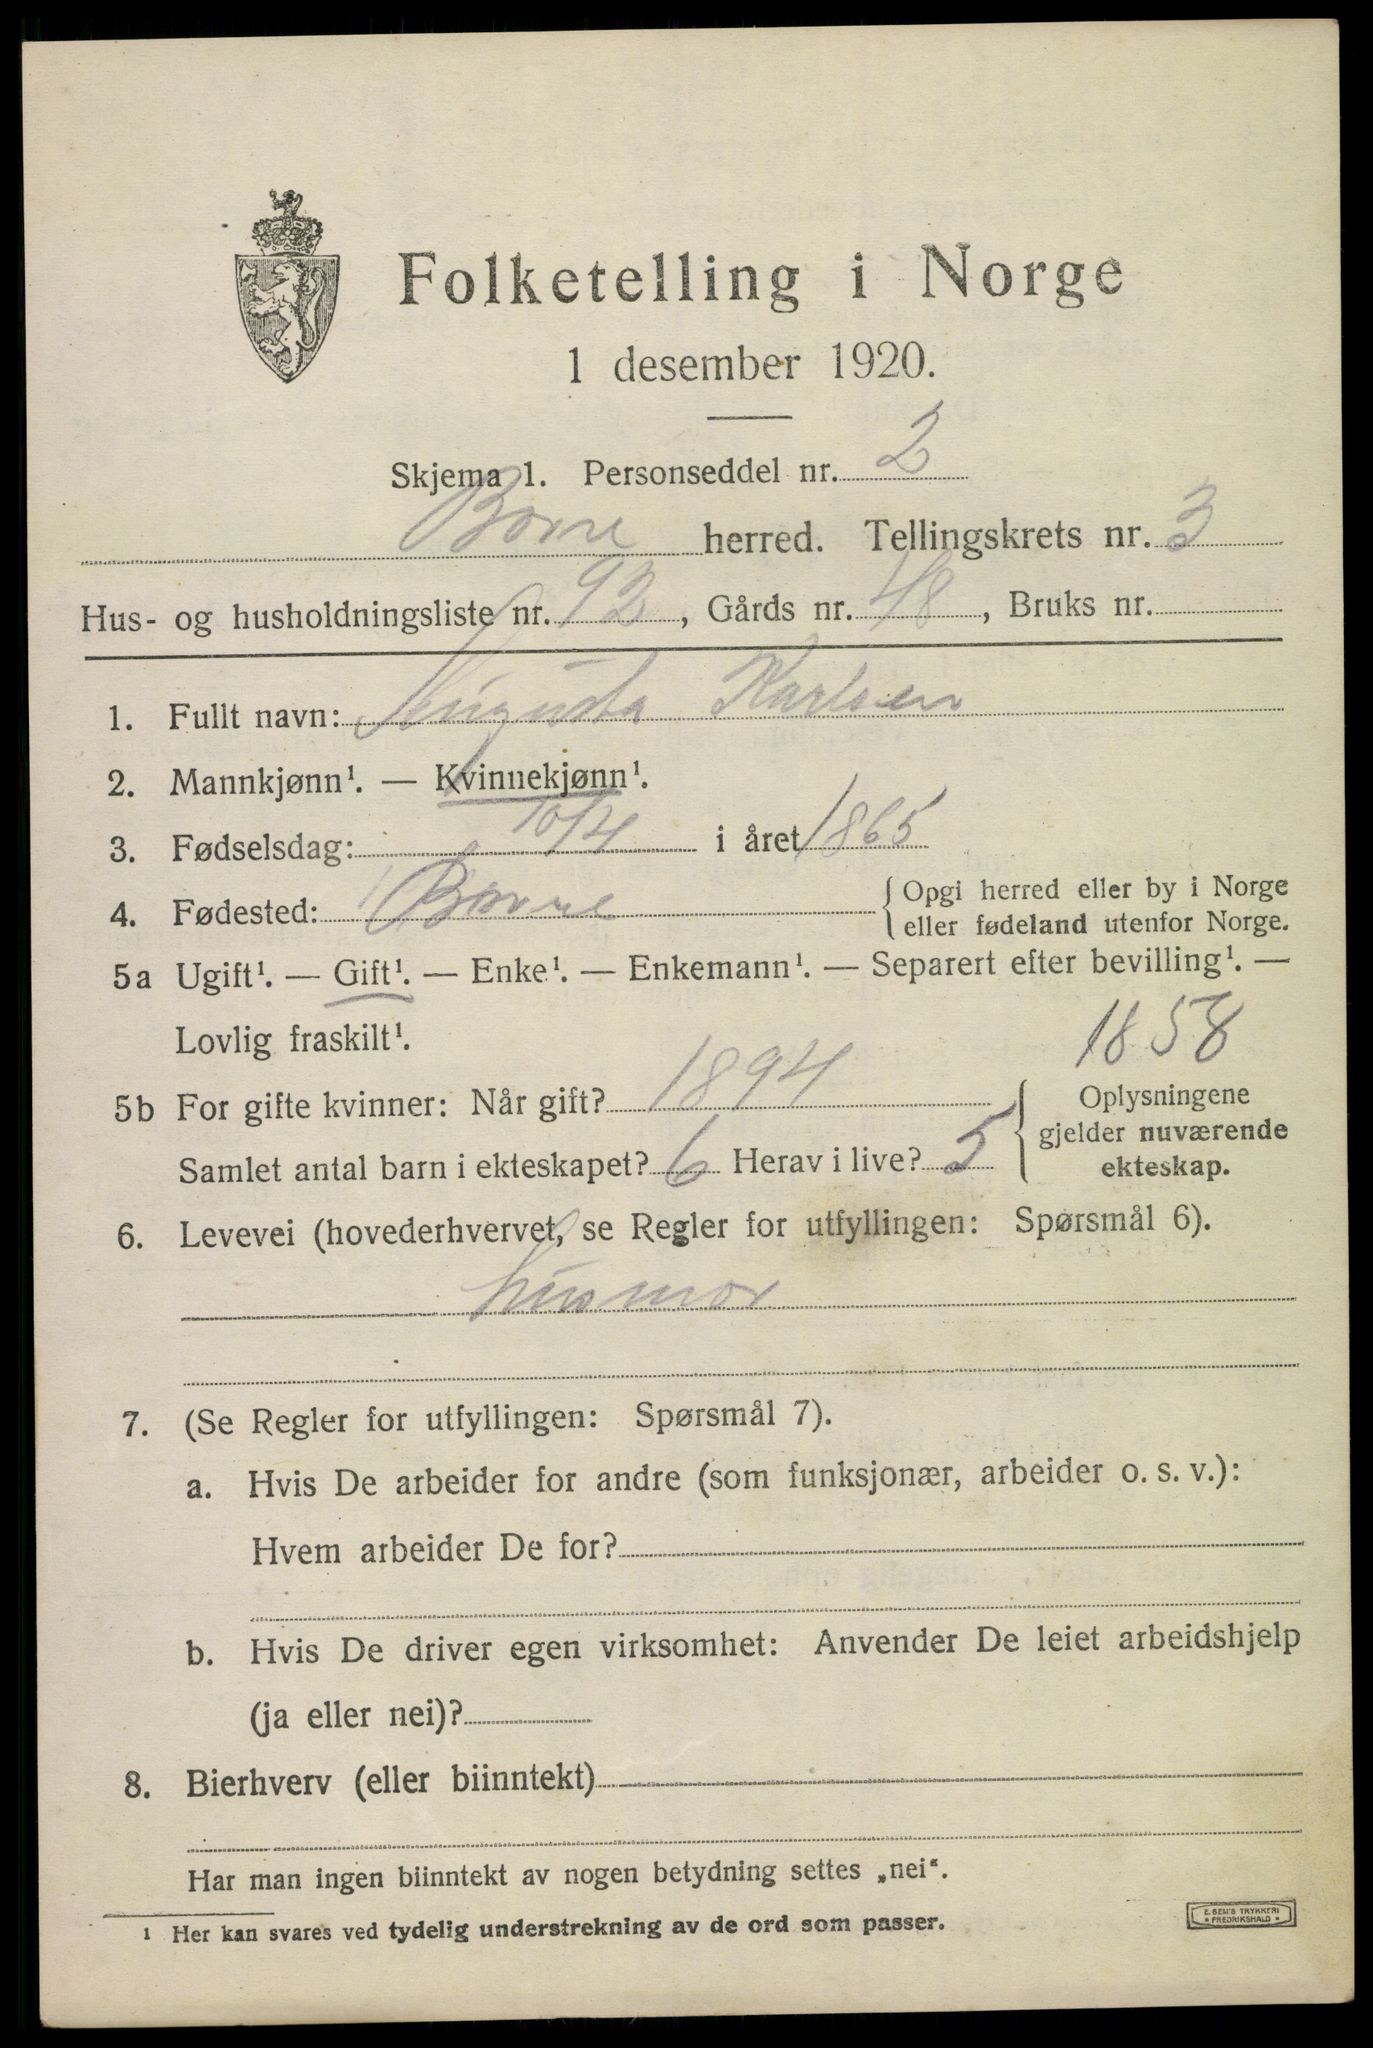 Folketelling i Norge
1 desember 1920.
Skjema 1. Personseddel nr. 2
Borre herred. Tellingskrets nr. 3
Hus- og husholdningsliste nr. 93, Gårds nr. 48, Bruks nr.
1. Fullt navn: Augusta Karlsen
2. Mannkjønn¹. — Kvinnekjønn¹.
3. Fødselsdag: 10/4 i året 1865
4. Fødested: Borre { Opgi herred eller by i Norge
eller fødeland utenfor Norge.
5a Ugift¹. — Gift¹. — Enke¹. — Enkemann¹. — Separert efter bevilling¹. —
Lovlig fraskilt¹.
1858
5b For gifte kvinner: Når gift? 1894
Samlet antal barn i ekteskapet? 6 Herav i live? 5
{ Oplysningene
gjelder nuværende
ekteskap.
6. Levevei (hovederhvervet, se Regler for utfyllingen: Spørsmål 6).
husmor
7. (Se Regler for utfyllingen: Spørsmål 7).
a. Hvis De arbeider for andre (som funksjonær, arbeider o. s. v.):
Hvem arbeider De for?
b. Hvis De driver egen virksomhet: Anvender De leiet arbeidshjelp
(ja eller nei)?
8. Bierhverv (eller biinntekt)
Har man ingen biinntekt av nogen betydning settes „nei“.
¹ Her kan svares ved tydelig understrekning av de ord som passer.
E. SEM'S TRYKKERI
• FREDRIKSHALD •